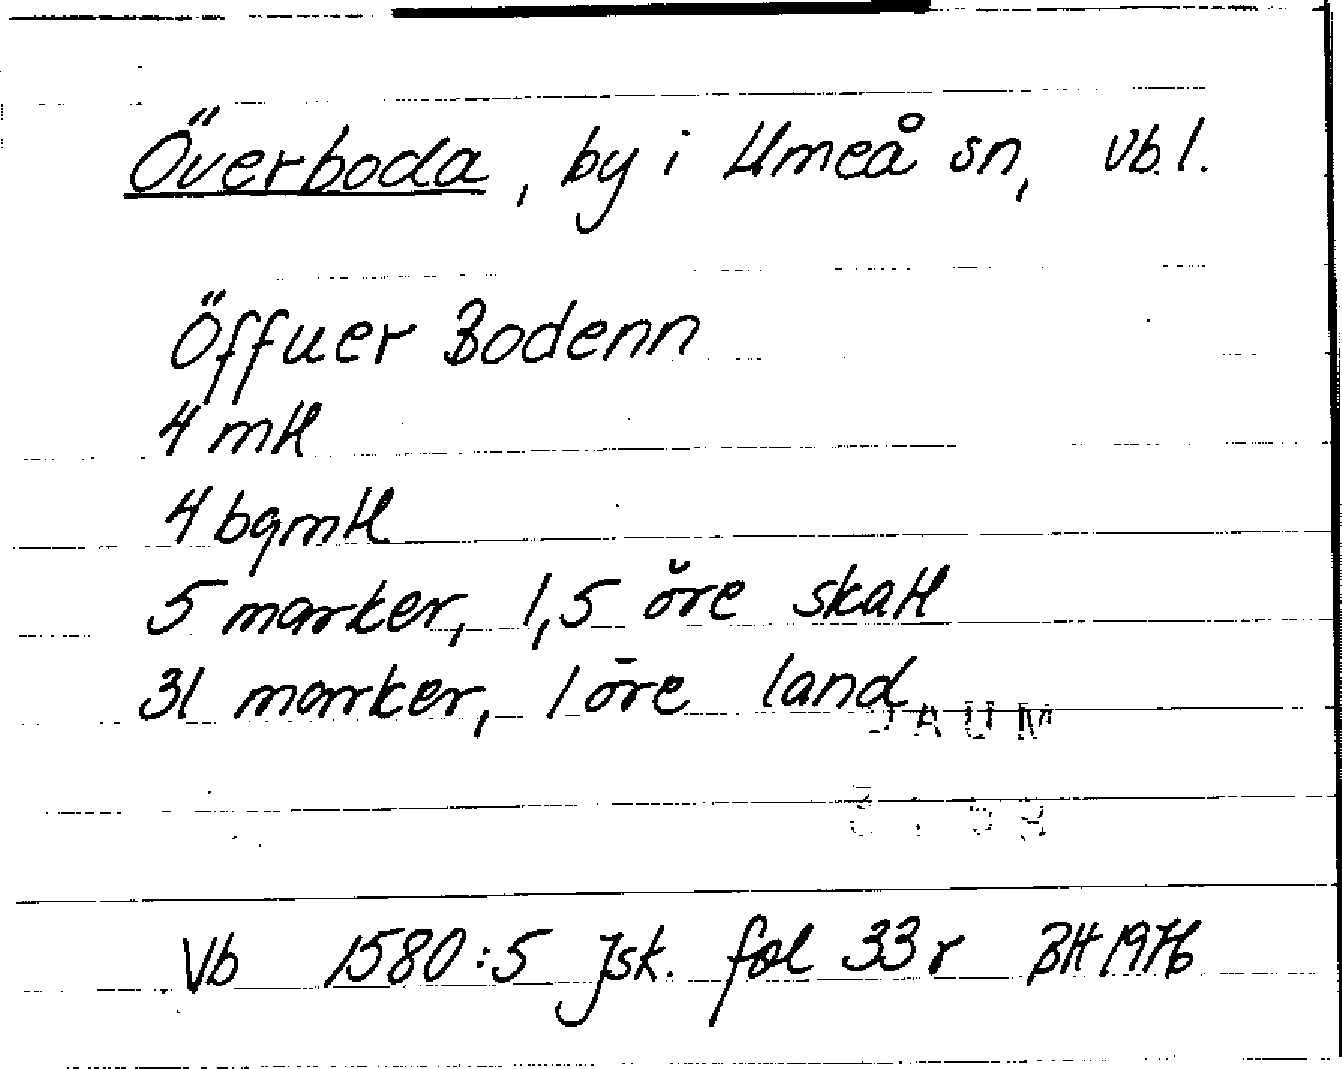 Överboda, by i Umeå sn, Vb.l.
Öffuer Bodenn
4 mtl
4 bgmtl
5 marker, 1,5 öre skatt
31 marker, 1 öre land
DAUM
Vb 1580:5 Jsk. fol 33r BH 1976